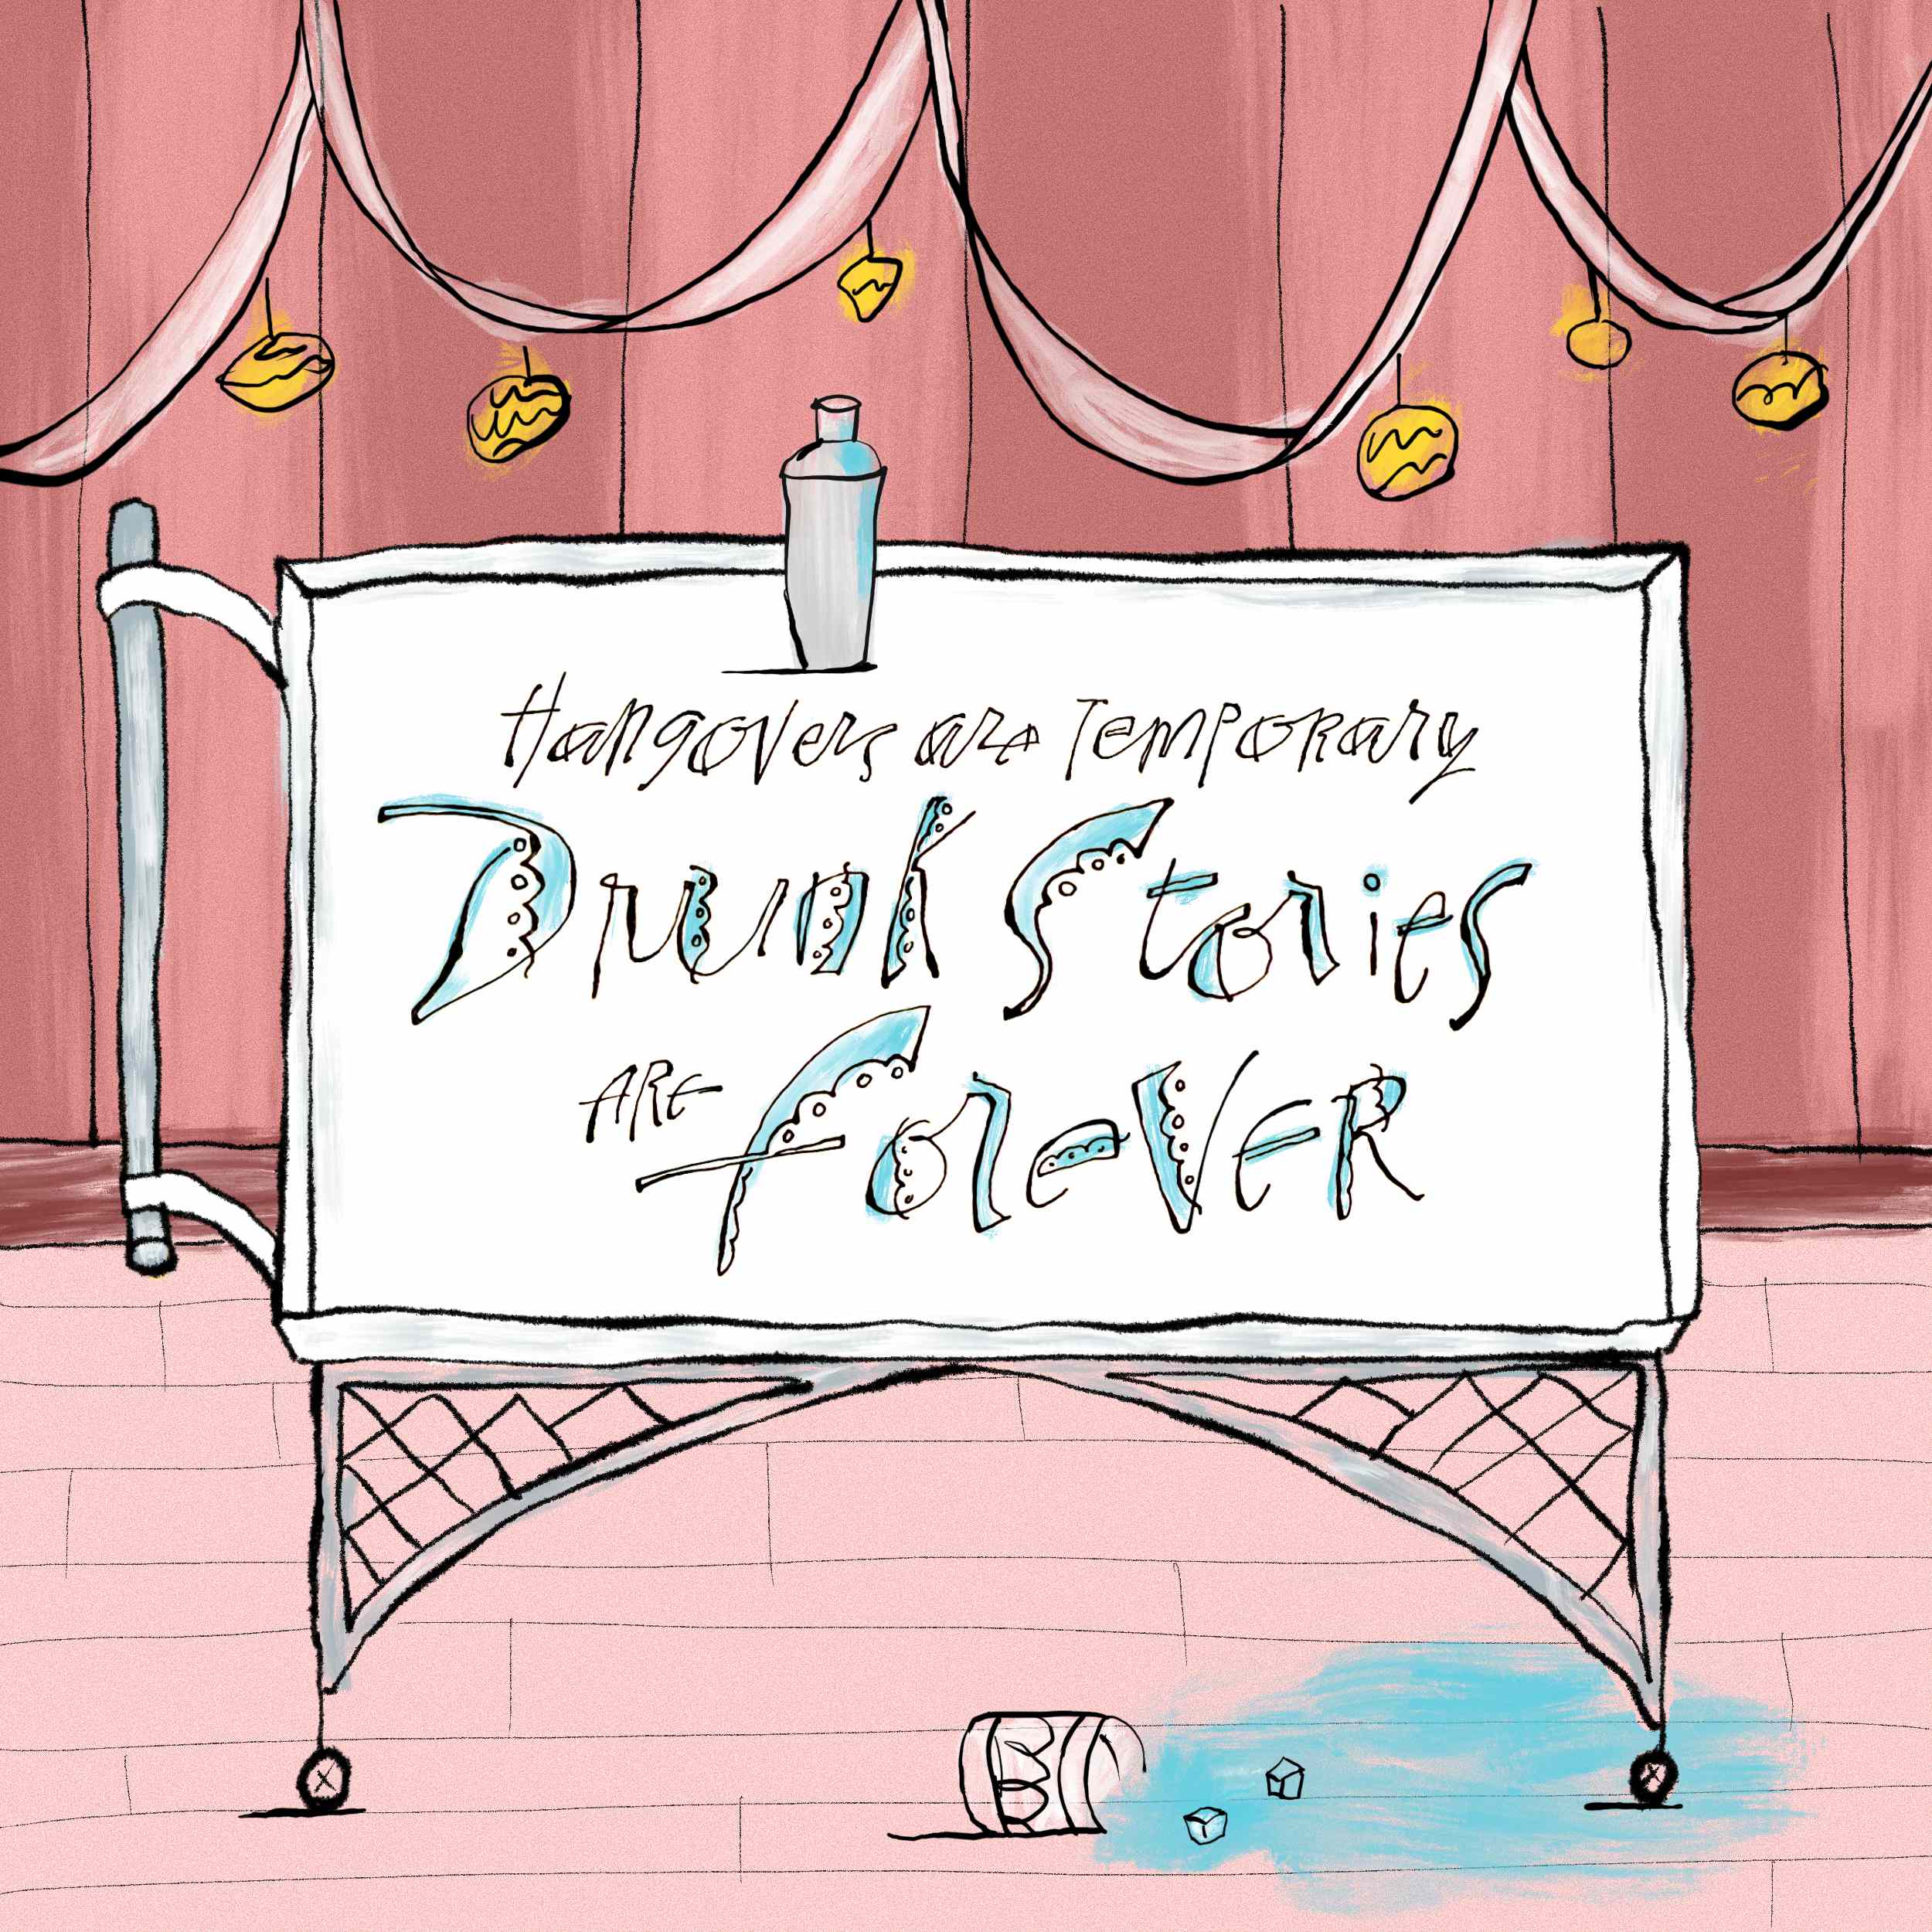 Hangovers are Temporary
Drunk Stories
ARE Forever